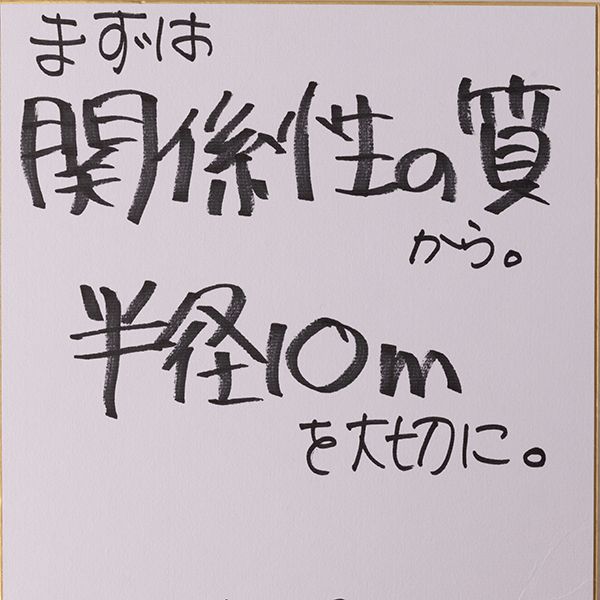 まずは
関係性の質
から。
半径10m
を大切に。